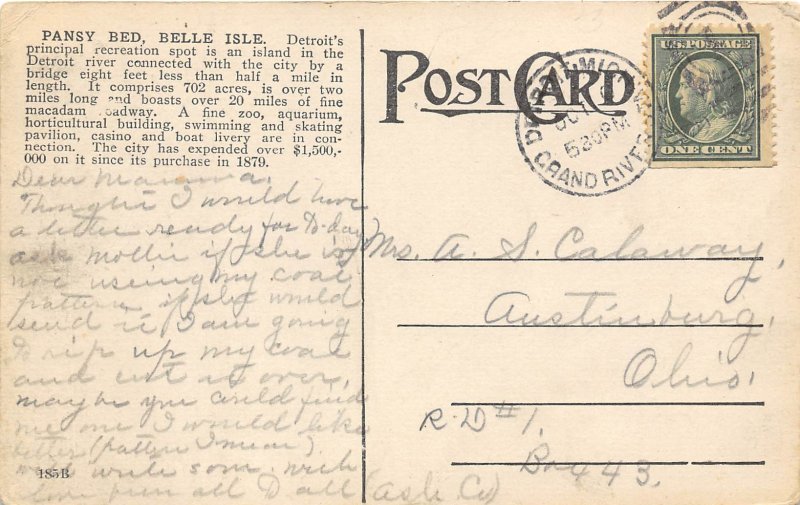 PANSY BED, BELLE ISLE. Detroit's
principal recreation spot is an island in the
Detroit river connected with the city by a
bridge eight feet less than half a mile in
length. It comprises 702 acres, is over two
miles long and boasts over 20 miles of fine
macadam roadway. A fine zoo, aquarium,
horticultural building, swimming and skating
pavilion, casino and boat livery are in con-
nection. The city has expended over $1,500,-
000 on it since its purchase in 1879.
Dear Mamma.
Thought I would have
a letter ready for to-day
ask Mollie if she is
not useing my coat
pattern if she would
send it I am going
to rip up my coat
and cut it over,
maybe you could find
me one I would like
better (pattern I mean).
write soon. with
love from all to all
185B
POST CARD
DETROIT, MICH.
OCT
5 30 PM
GRAND RIVER
U.S. POSTAGE
ONE CENT
Mrs. A. S. Calaway,
Austinburg,
Ohio.
R.D #1.
Box 443.
(Ash. Co)